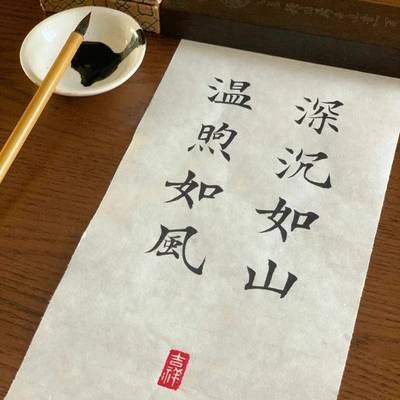 深沉如山
温煦如風
吉祥